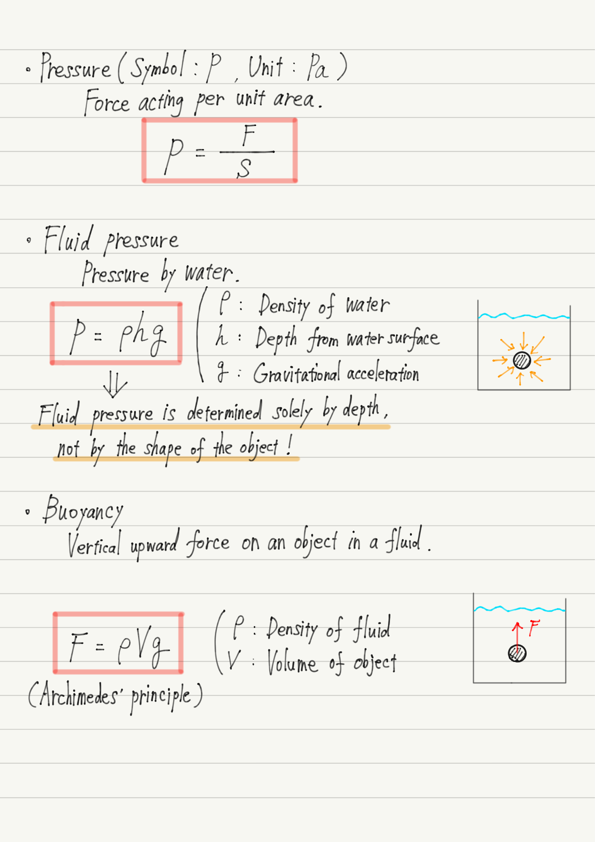 • Pressure ( Symbol : P , Unit : Pa )
Force acting per unit area.
P = F / S
• Fluid pressure
Pressure by water.
P = ρhg
ρ : Density of water
h : Depth from water surface
g : Gravitational acceleration
⇓
Fluid pressure is determined solely by depth,
not by the shape of the object !
• Buoyancy
Vertical upward force on an object in a fluid.
F = ρVg
ρ : Density of fluid
V : Volume of object
F
(Archimedes' principle)